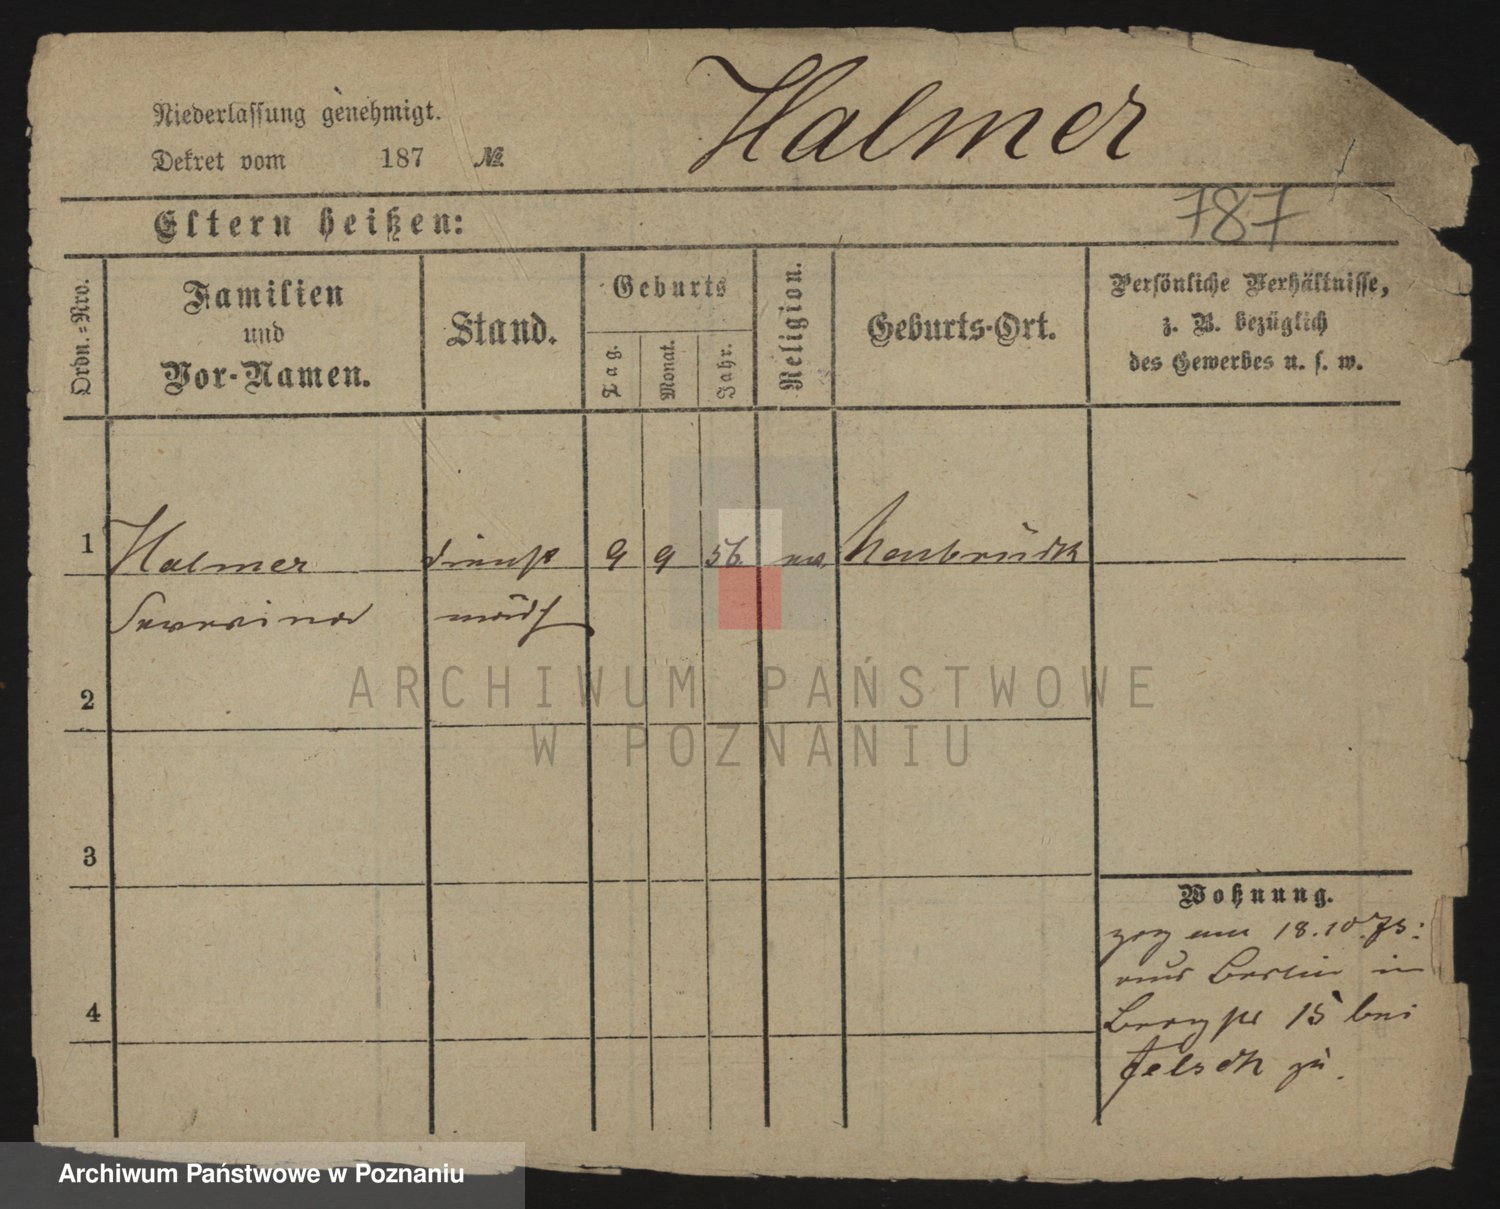 Halmer
Niederlassung genehmigt.
Dekret vom 187 №
787
Eltern heißen:
Ordn.=Nro.
Familien
und
Vor-Namen.
Stand.
Geburts
Tag.
Monat.
Jahr.
Religion.
Geburts-Ort.
Persönliche Verhältnisse,
z. B. bezüglich
des Gewerbes u. s. w.
1 Halmer dienst 9 9 56. ev. Neubrück
Severina mädch
2
3
4
Wohnung.
zog am 18.10.75.
aus Berlin in
Bergstr 15 bei
zu.
ARCHIWUM PAŃSTWOWE
W POZNANIU
Archiwum Państwowe w Poznaniu